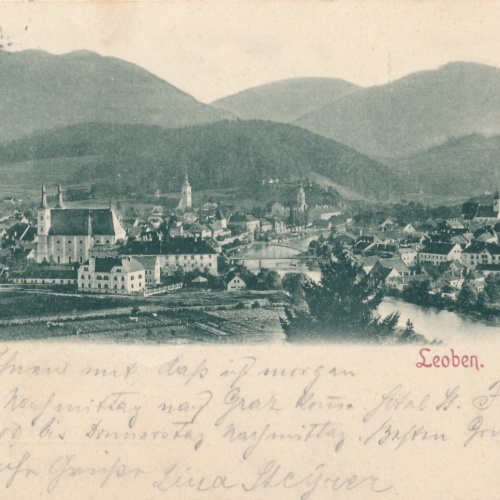 Leoben.
mit daß ich morgen
Nachmittag nach Graz komme Hotel St.
bis Donnerstag Nachmittag. Besten
Lina Steyrer